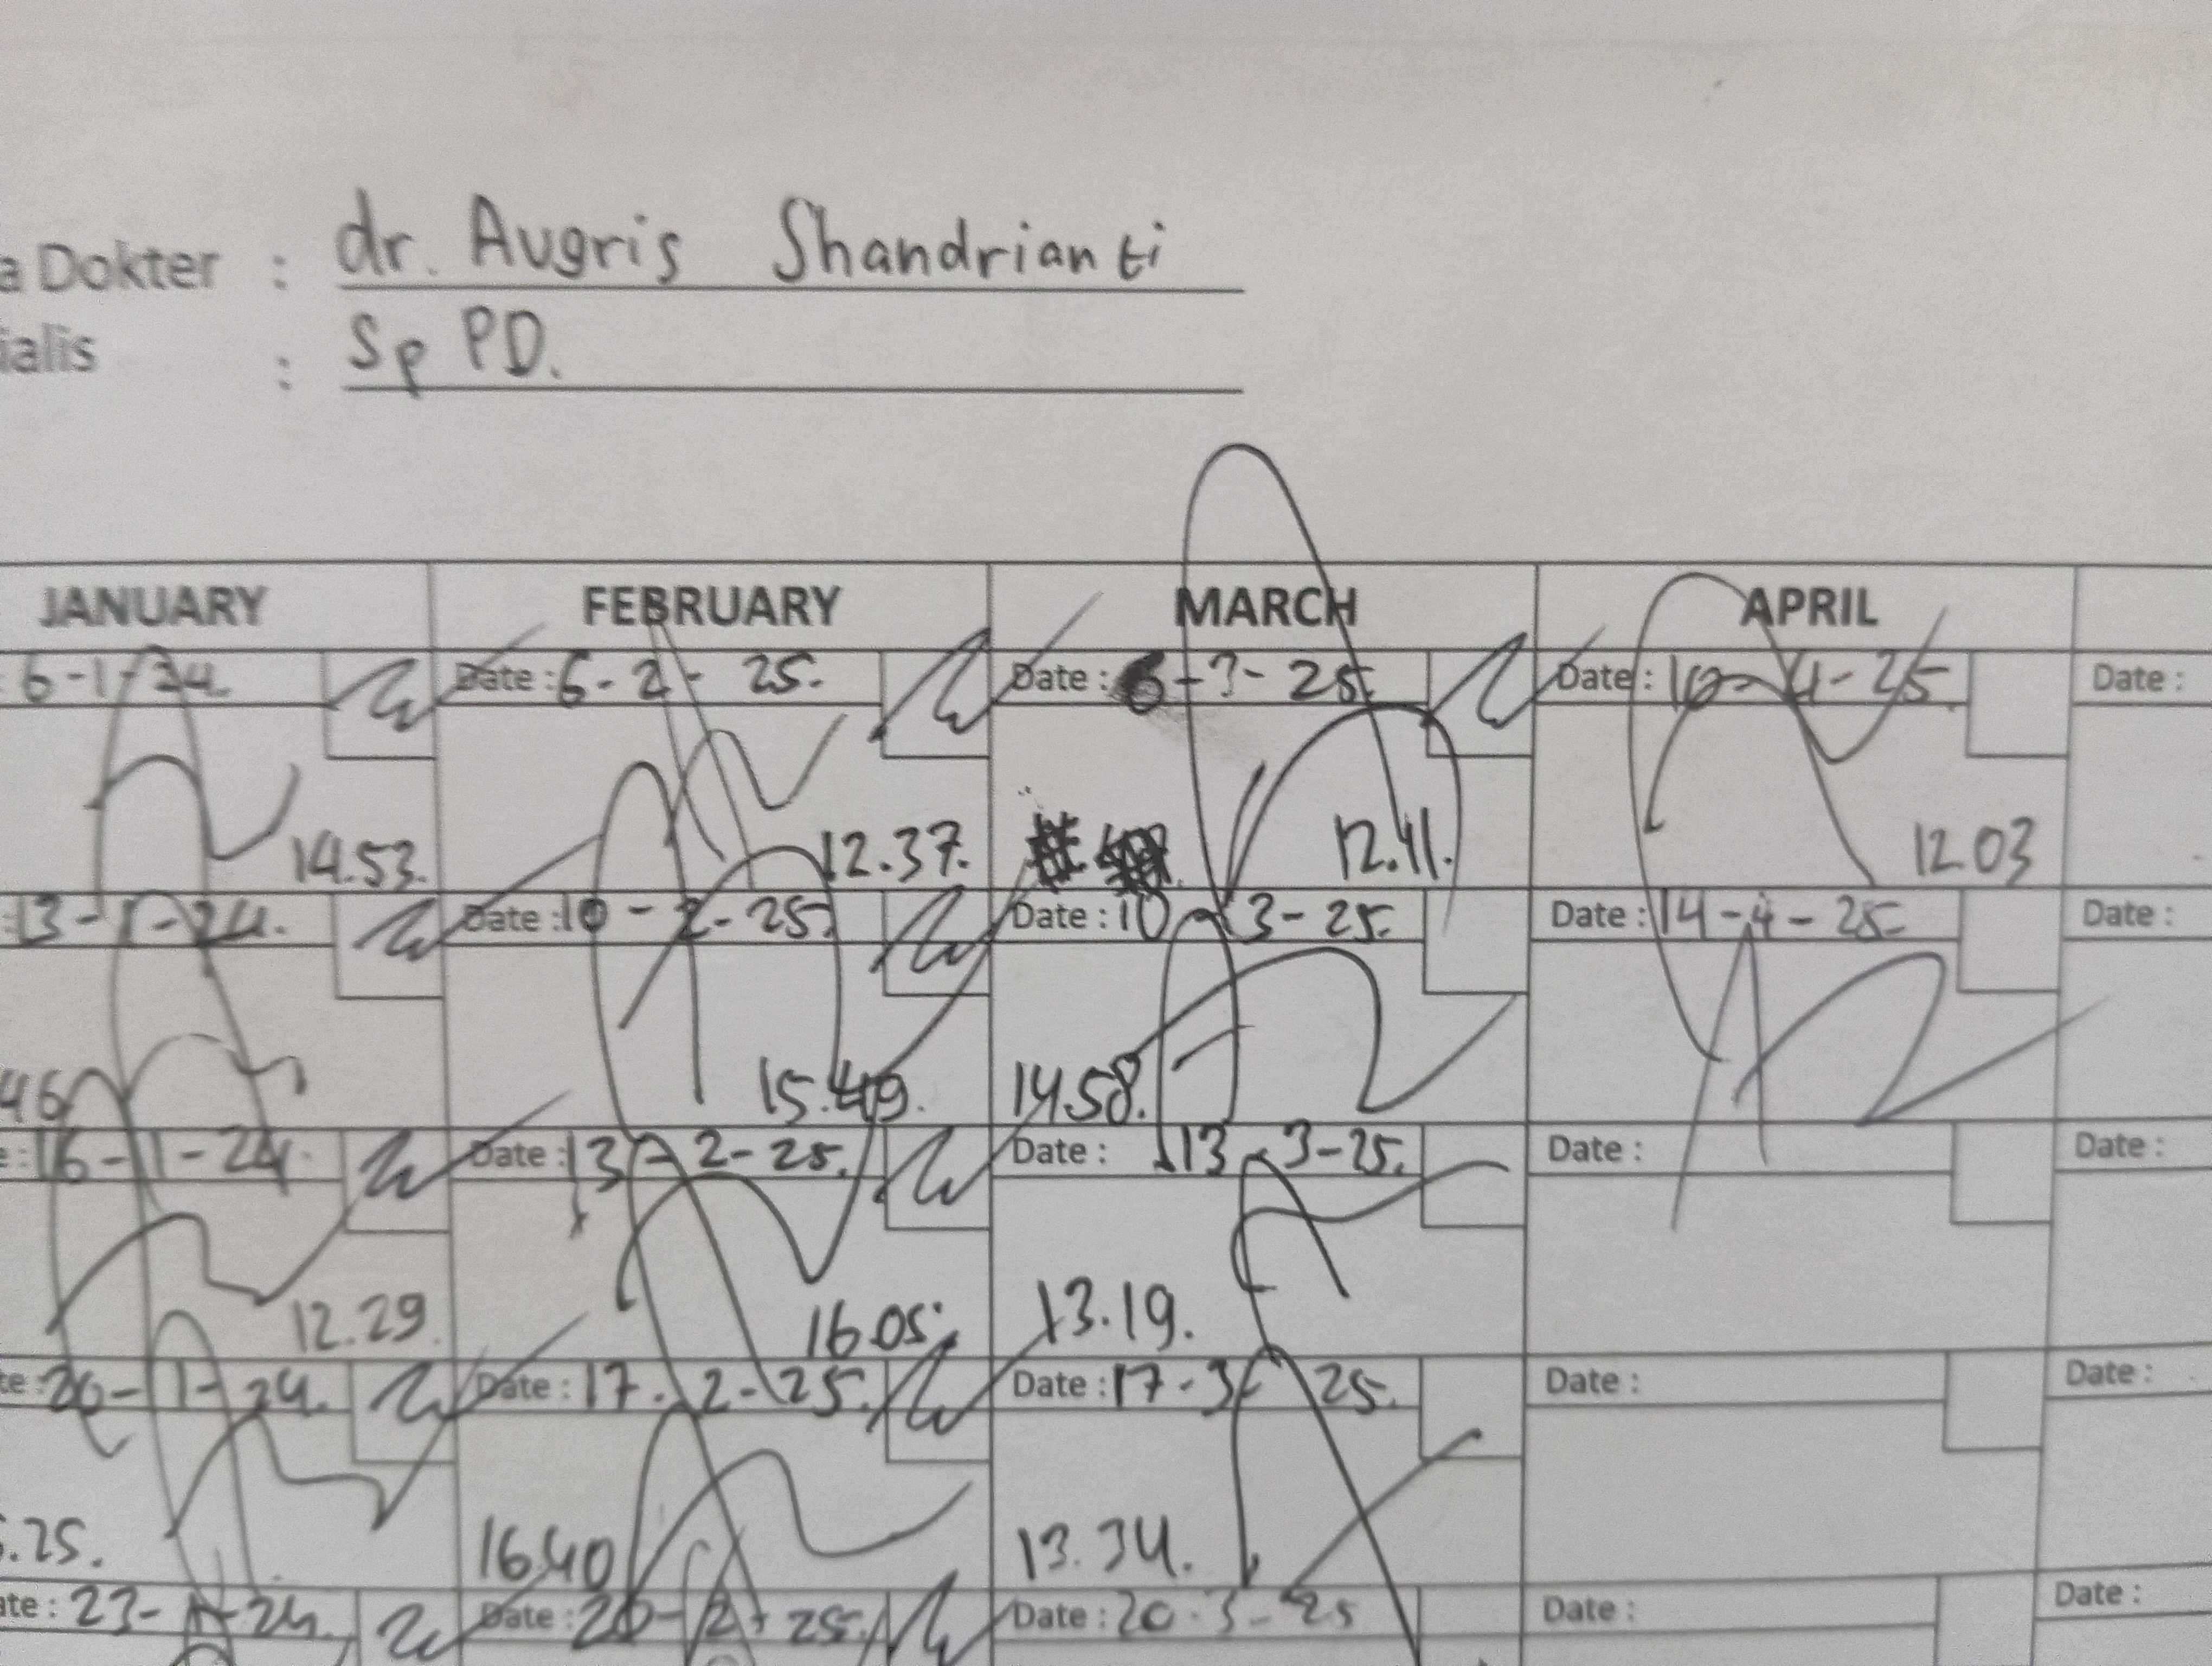 a Dokter : dr. Augris Shandrianti
ialis : Sp PD.
JANUARY FEBRUARY MARCH APRIL
6-1-24. Date : 6-2-25. Date : 6-3-25 Date : 10-4-25. Date :
14.53. 12.37. 12.41. 12.03
: 13-1-24. Date : 10-2-25. Date : 10-3-25. Date : 14-4-25. Date :
46 15.49. 14.58.
e : 16-1-24. Date : 13-2-25. Date : 13-3-25. Date : Date :
12.29. 16.05. 13.19.
te : 20-1-24. Date : 17-2-25. Date : 17-3-25. Date : Date :
.25. 16.40 13.34.
ate : 23-1-24. Date : 20-2-25. Date : 20-3-25 Date : Date :